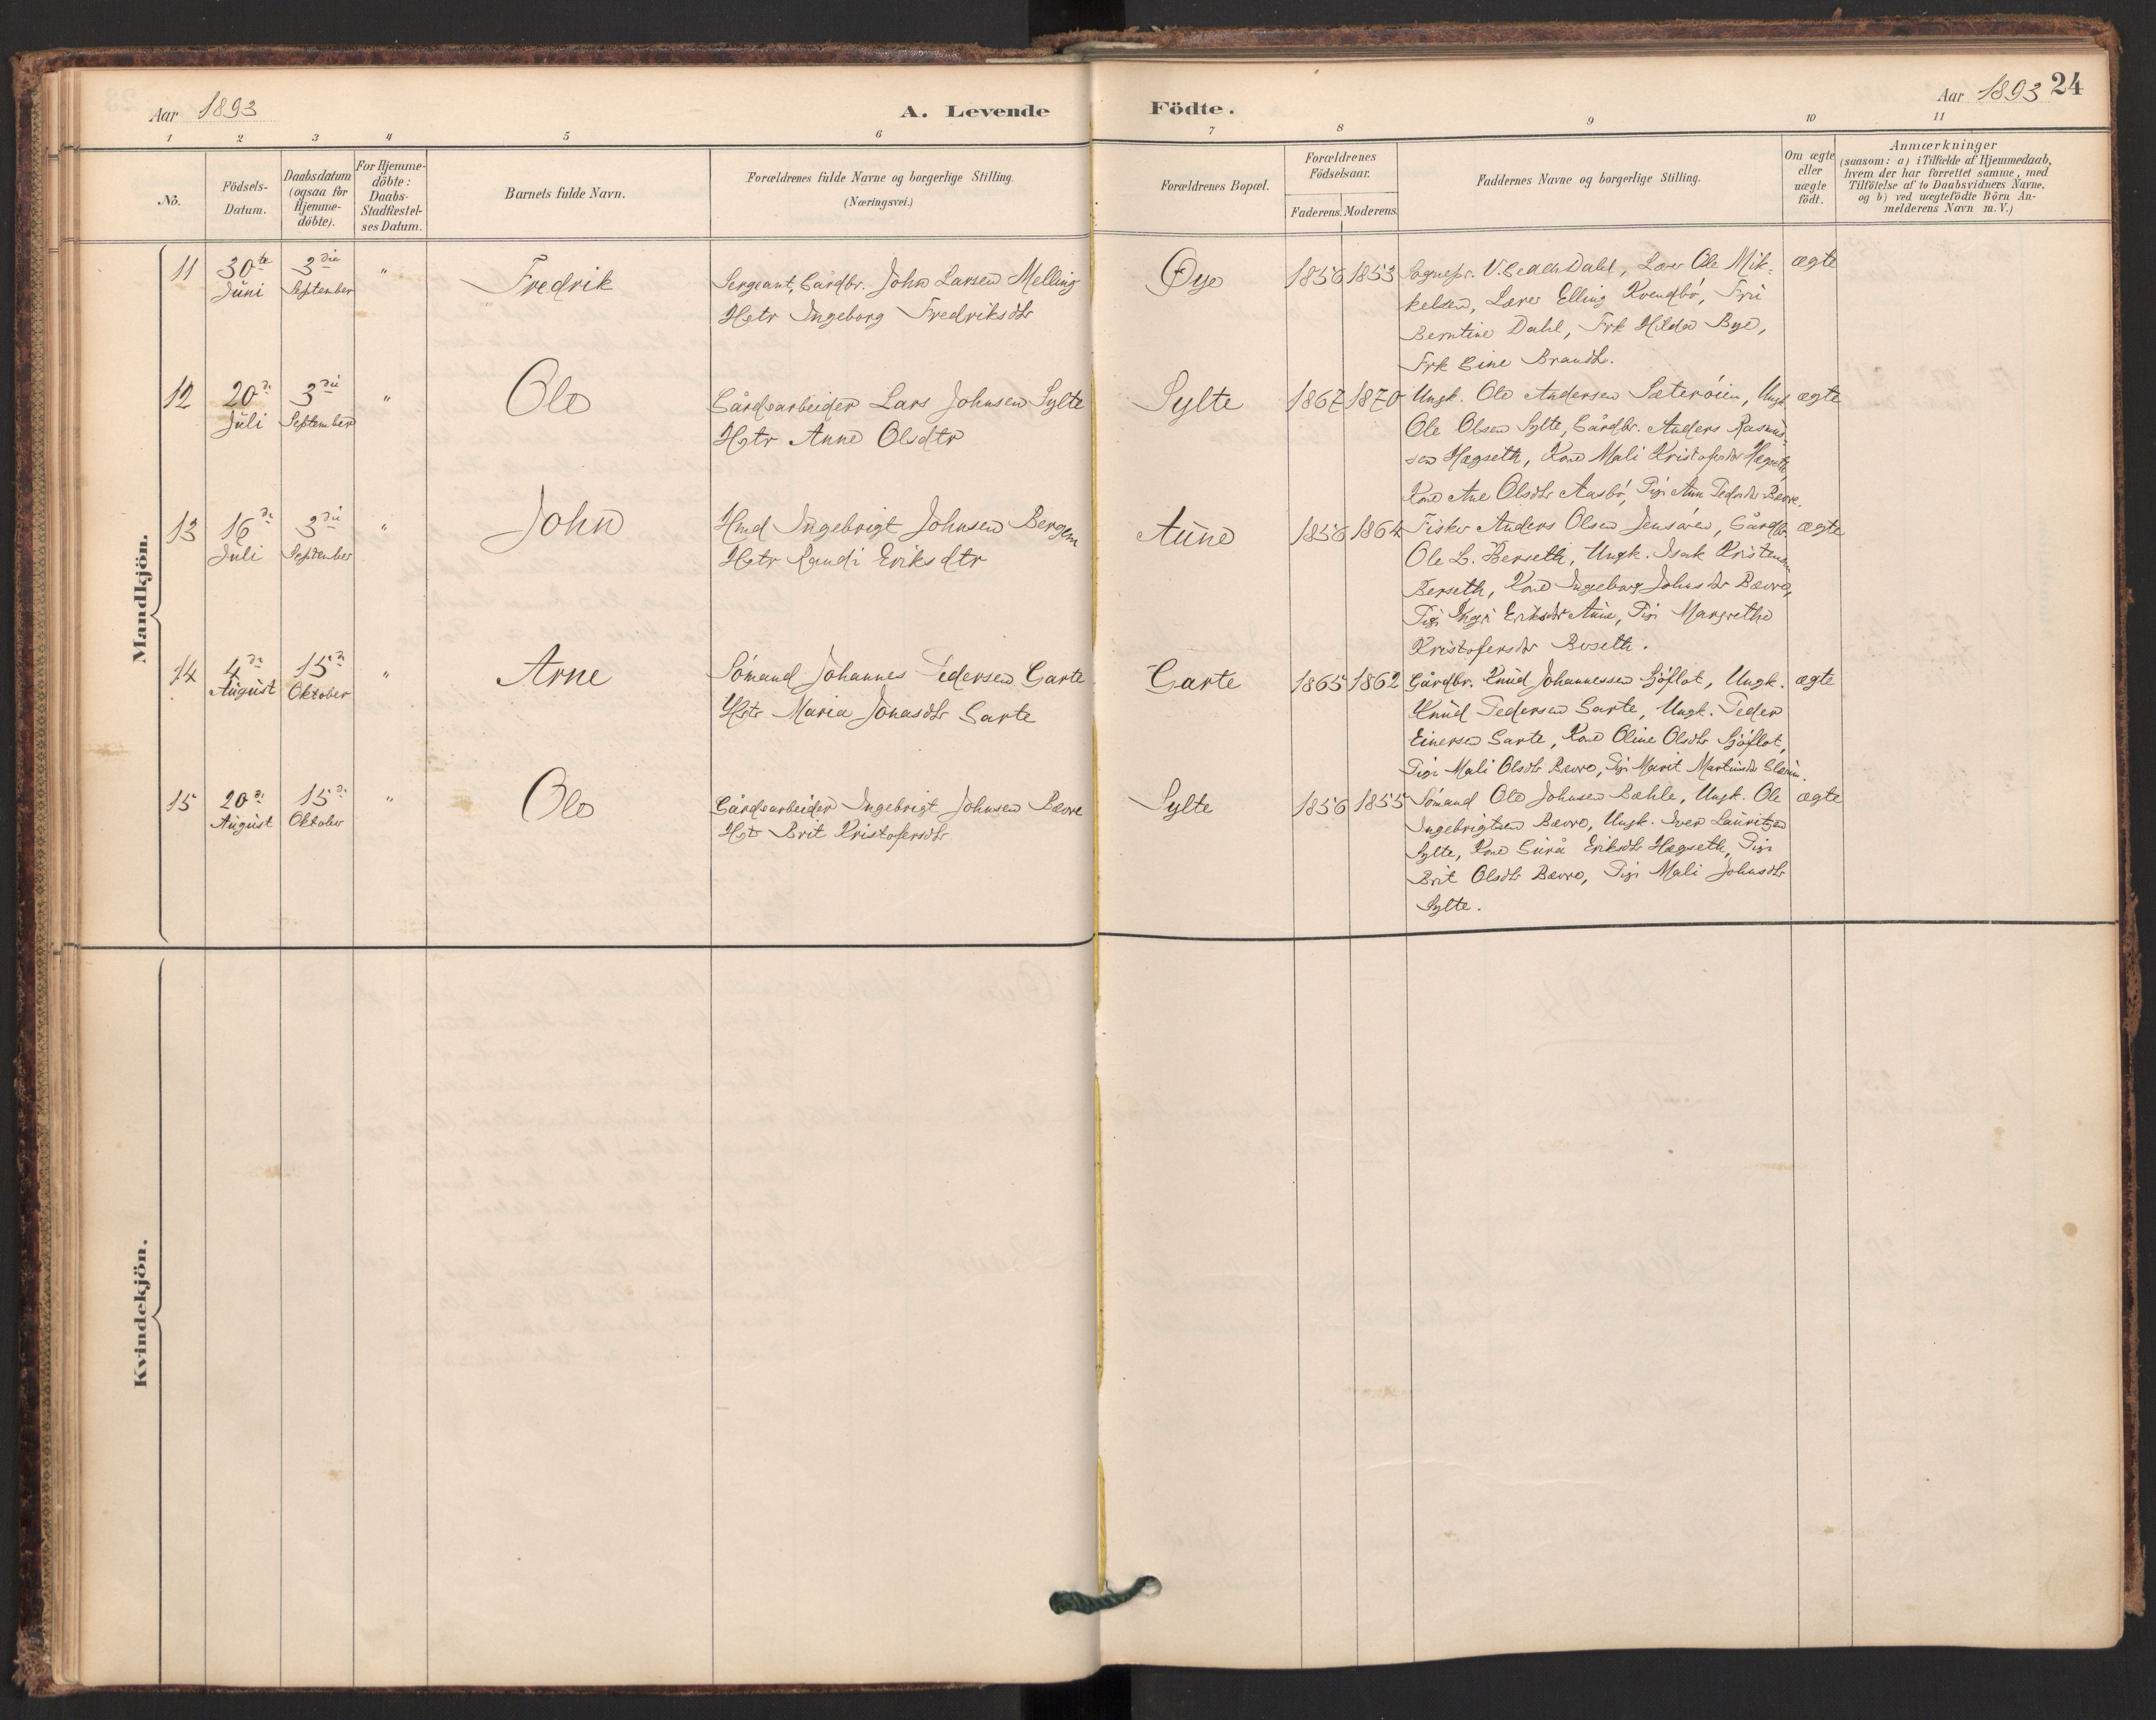 Aar 1893
A. Levende Födte.
Aar 1893 24
1 2 3 4 5 6 7 8 9 10 11
No.
Födsels-Datum.
Daabsdatum (ogsaa for Hjemme-döbte).
For Hjemme-döbte: Daabs-Stadfæstel-ses Datum.
Barnets fulde Navn.
Forældrenes fulde Navne og borgerlige Stilling.
(Næringsvei.)
Forældrenes Bopæl.
Forældrenes Födselsaar.
Faderens. Moderens.
Faddernes Navne og borgerlige Stilling.
Om ægte eller uægte födt.
Anmærkninger
(saasom: a) i Tilfælde af Hjemmedaab,
hvem der har forrettet samme, med
Tilföielse af to Daabsvidners Navne,
og b) ved uægtefödte Börn An-
melderens Navn m.V.)
Mandkjön.
11 30te Juni 3die September " Fredrik
Sergeant, Gårdbr. John Larsen Melling
Hstr Ingeborg Fredriksdtr
Øye 1856 1853
Sognepr. Dahl, Lærer Ole Mik-
kelsen, Lærer Elling Kvendbö, Fru
Berntine Dahl, Frk Hilda Bye,
Frk Brandt.
ægte
12 20de Juli 3die September " Ole
Gårdsarbeider Lars Johnsen Sylte
Hstr Anne Olsdtr
Sylte 1867 1870
Ungk. Ole Andersen Sæteröien, Ungk.
Ole Olsen Sylte, Gårdbr. Anders Rasmus-
sen Hægseth, Kone Mali Kristofersdtr Hægseth,
Kone Ane Olsdtr Aasbö, Pige Ane Pedersdtr Bævre.
ægte
13 16de Juli 3die September " John
Hmd Ingebrigt Johnsen Bergem
Hstr Randi Eriksdtr
Aune 1856 1864
Fisker Anders Olsen Jensåren, Gårdbr.
Ole L. Berseth, Ungk. Isak Kristensen
Berseth, Kone Ingeborg Johnsdtr Bævre,
Pige Eriksdtr Aune, Pige Margrethe
Kristofersdtr Beseth.
ægte
14 4de August 15de Oktober " Arne
Sömand Johannes Pedersen Garte
Hstr Maria Jonasdtr Garte
Garte 1865 1862
Gårdbr. Knud Johannessen Sjöflot, Ungk.
Knud Pedersen Garte, Ungk. Peder
Einersen Garte, Kone Oline Olsdtr Sjöflot,
Pige Mali Olsdtr Bævre, Pige Marit Martinsdtr Glærum.
ægte
15 20de August 15de Oktober " Ole
Gårdsarbeider Ingebrigt Johnsen Bævre
Hstr Brit Kristofersdtr
Sylte 1856 1855
Sömand Ole Johnsen Bæhle, Ungk. Ole
Ingebrigtsen Bævre, Ungk. Iver Lauritzen
Sylte, Kone Gurå Eriksdtr Hægseth, Pige
Brit Olsdtr Bævre, Pige Mali Johnsdtr
Sylte.
ægte
Kvindekjön.